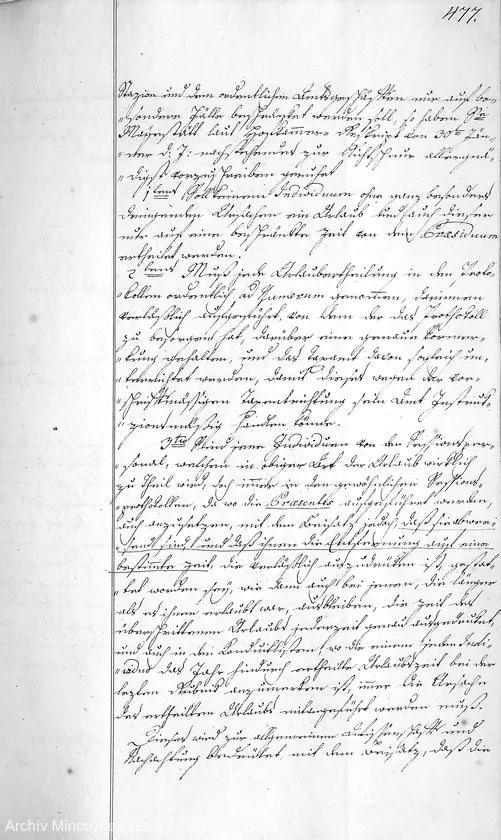 477.
Stazion und den ordentlichen Amtsgeschäften nur auf be-
„sondere Fälle beschränket werden soll, so haben Se
Mayestätt laut Hofkammer-Reskript von 30ten Jän-
„ner d: J: nachstehendes zur Richtschnur allergnä-
„digst vorzuschreiben geruhet
1tens Soll keinem Individuum ohne ganz besonders
dringenden Ursachen ein Urlaub und auch dieser
nur auf eine beschränkte Zeit von dem Præsidium
ertheilet werden.
2tens Muß jede Urlaubertheilung in den Proto-
„kollen ordentlich ad Numerum genommen, darinnen
verläßlich ausgeführt, von dem der das Prothokoll
zu besorgen hat, darüber eine genaue Vormer-
„kung gehalten, und das Taxamt davon sogleich un-
„terrichtet werden, damit dieses wegen der vor-
„schriftmässigen Taxentrichtung sein Amt Instruk-
„zionsmässig handeln könne.
3tens Sind jene Individuen von der Sessionsper-
„sonal, welchen in obiger Art der Urlaub wirklich
zu Theil wird, doch immer in den gewöhnlichen Sessions-
„prothokollen, da wo die Præsentes aufgeführet werden,
auch anzusetzen, mit dem Beisatz jedoch, daß sie abwe-
„send sind, und daß ihnen die Entfernung auf eine
bestimmte Zeit, die verläßlich auszudrüken ist, gestat-
„tet worden sey, wie dann auch bei jenen, die länger
als es ihnen erlaubt war, ausbleiben, die Zeit des
überschrittenen Urlaubs jederzeit genau ausgedeutet,
und auch in den Conduitlisten, wo die einem jeden Indi-
„viduo das Jahr hindurch ertheilte Urlaubszeit bei der
letzten Rubrik anzumerken ist, immer die Ursache
des ertheilten Urlaubs mitangeführt werden muß.
Dieses wird zur allgemeinen Wissenschaft und
Nachachtung bedeutet, mit dem Beisatz, daß die
Archív Mincovne Kremnica